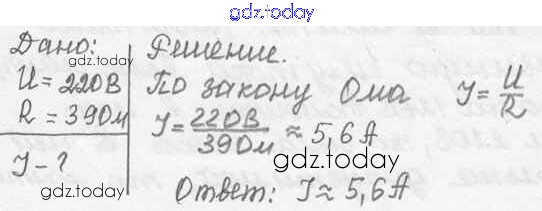 gdz.today
Дано:
gdz.today
U = 220В
R = 39Ом
J - ?
gdz.today
Решение.
По закону Ома J = U/R
J = 220В/39Ом ≈ 5,6 А
gdz.today
Ответ: J ≈ 5,6 А